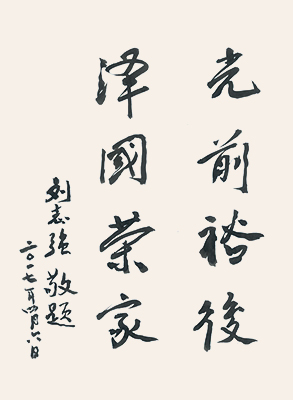 光前裕後
澤國榮家
刘志強敬題
二〇一七年四月六日